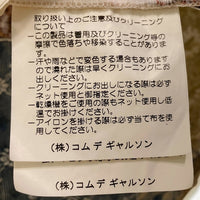 取り扱い上のご注意及びクリーニング
について
−この製品は着用及びクリーニング等の
摩擦で色落ちや移染することがありま
す。
−汗や雨などで変色する場合もあります
ので濡れた際は早くクリーニングにお
出しください。
−クリーニングにお出しになる際は必ず
ネット使用と御指定ください。
−乾燥機をご使用の際もネット使用し低
温でお掛けください。
−アイロンを掛ける際は必ず当て布を使
用してください。
(株)コムデ ギャルソン
(株)コムデ ギャルソン